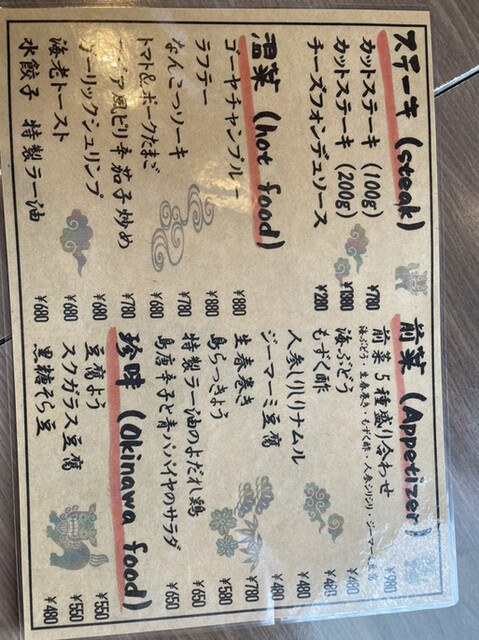 ステーキ (steak)
カットステーキ (100g) ¥780
カットステーキ (200g)
チーズフォンデュソース ¥280
温菜 (hot food)
ゴーヤチャンプルー ¥880
ラフテー ¥880
なんこつソーキ ¥780
トマト&ポークたまご ¥680
アジア風ピリ辛茄子炒め ¥780
ガーリックシュリンプ ¥680
海老トースト ¥680
水餃子 特製ラー油 ¥680
前菜 (Appetizer)
前菜5種盛り合わせ ¥980
海ぶどう・生春巻き・もずく酢・人参シリシリ・ジーマーミ豆腐
海ぶどう
もずく酢
人参しりしりナムル ¥480
ジーマーミ豆腐 ¥480
生春巻き ¥780
島らっきょう ¥580
特製ラー油のよだれ鶏 ¥650
島唐辛子と青パパイヤのサラダ ¥650
珍味 (Okinawa food)
豆腐よう ¥550
スクガラス豆腐 ¥550
黒糖そら豆 ¥480